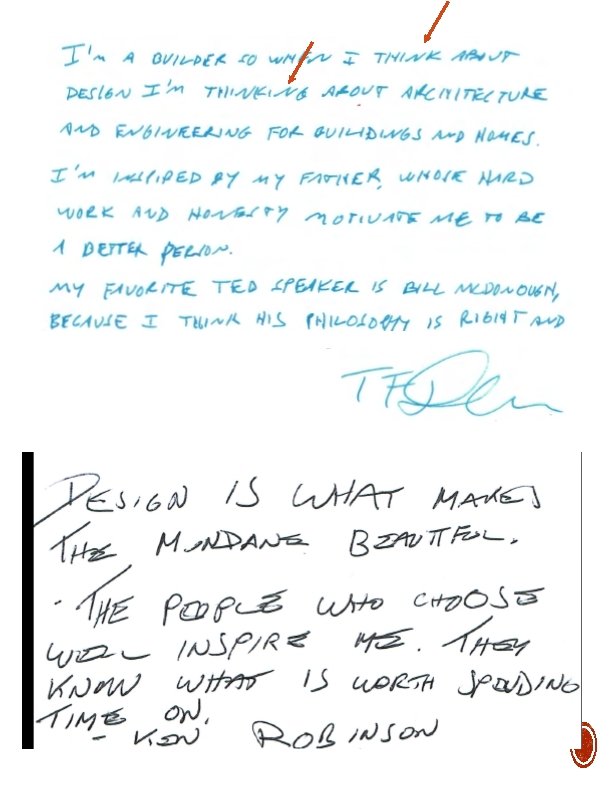 I'M A BUILDER SO WHEN I THINK ABOUT
DESIGN I'M THINKING ABOUT ARCHITECTURE
AND ENGINEERING FOR BUILIDINGS AND HOMES.
I'M INSPIRED BY MY FATHER, WHOSE HARD
WORK AND HONESTY MOTIVATE ME TO BE
A BETTER PERSON.
MY FAVORITE TED SPEAKER IS BILL MCDONOUGH,
BECAUSE I THINK HIS PHILOSOPHY IS RIGHT AND
DESIGN IS WHAT MAKES
THE MUNDANE BEAUTIFUL.
- THE PEOPLE WHO CHOOSE
WELL INSPIRE ME. THEY
KNOW WHAT IS WORTH SPENDING
TIME ON.
- KEN ROBINSON